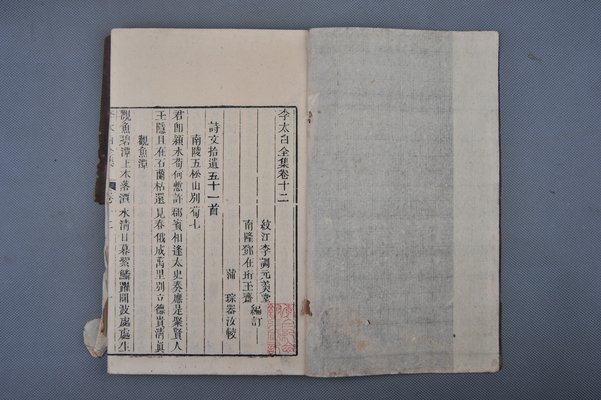 李太白全集卷十二
綿江李調元美堂
南隆鄧在珩玉齋 編訂
蒲 琮器汝較
詩文拾遺五十一首
南陵五松山別荀七
君即潁水荀何慙許郡賓相逢太史奏應是聚賢人
玉隱且在石蘭枯還見春俄成萬里別立德貴清真
觀魚潭
觀魚碧潭上木落潭水清日暮紫鱗躍圓波處處生